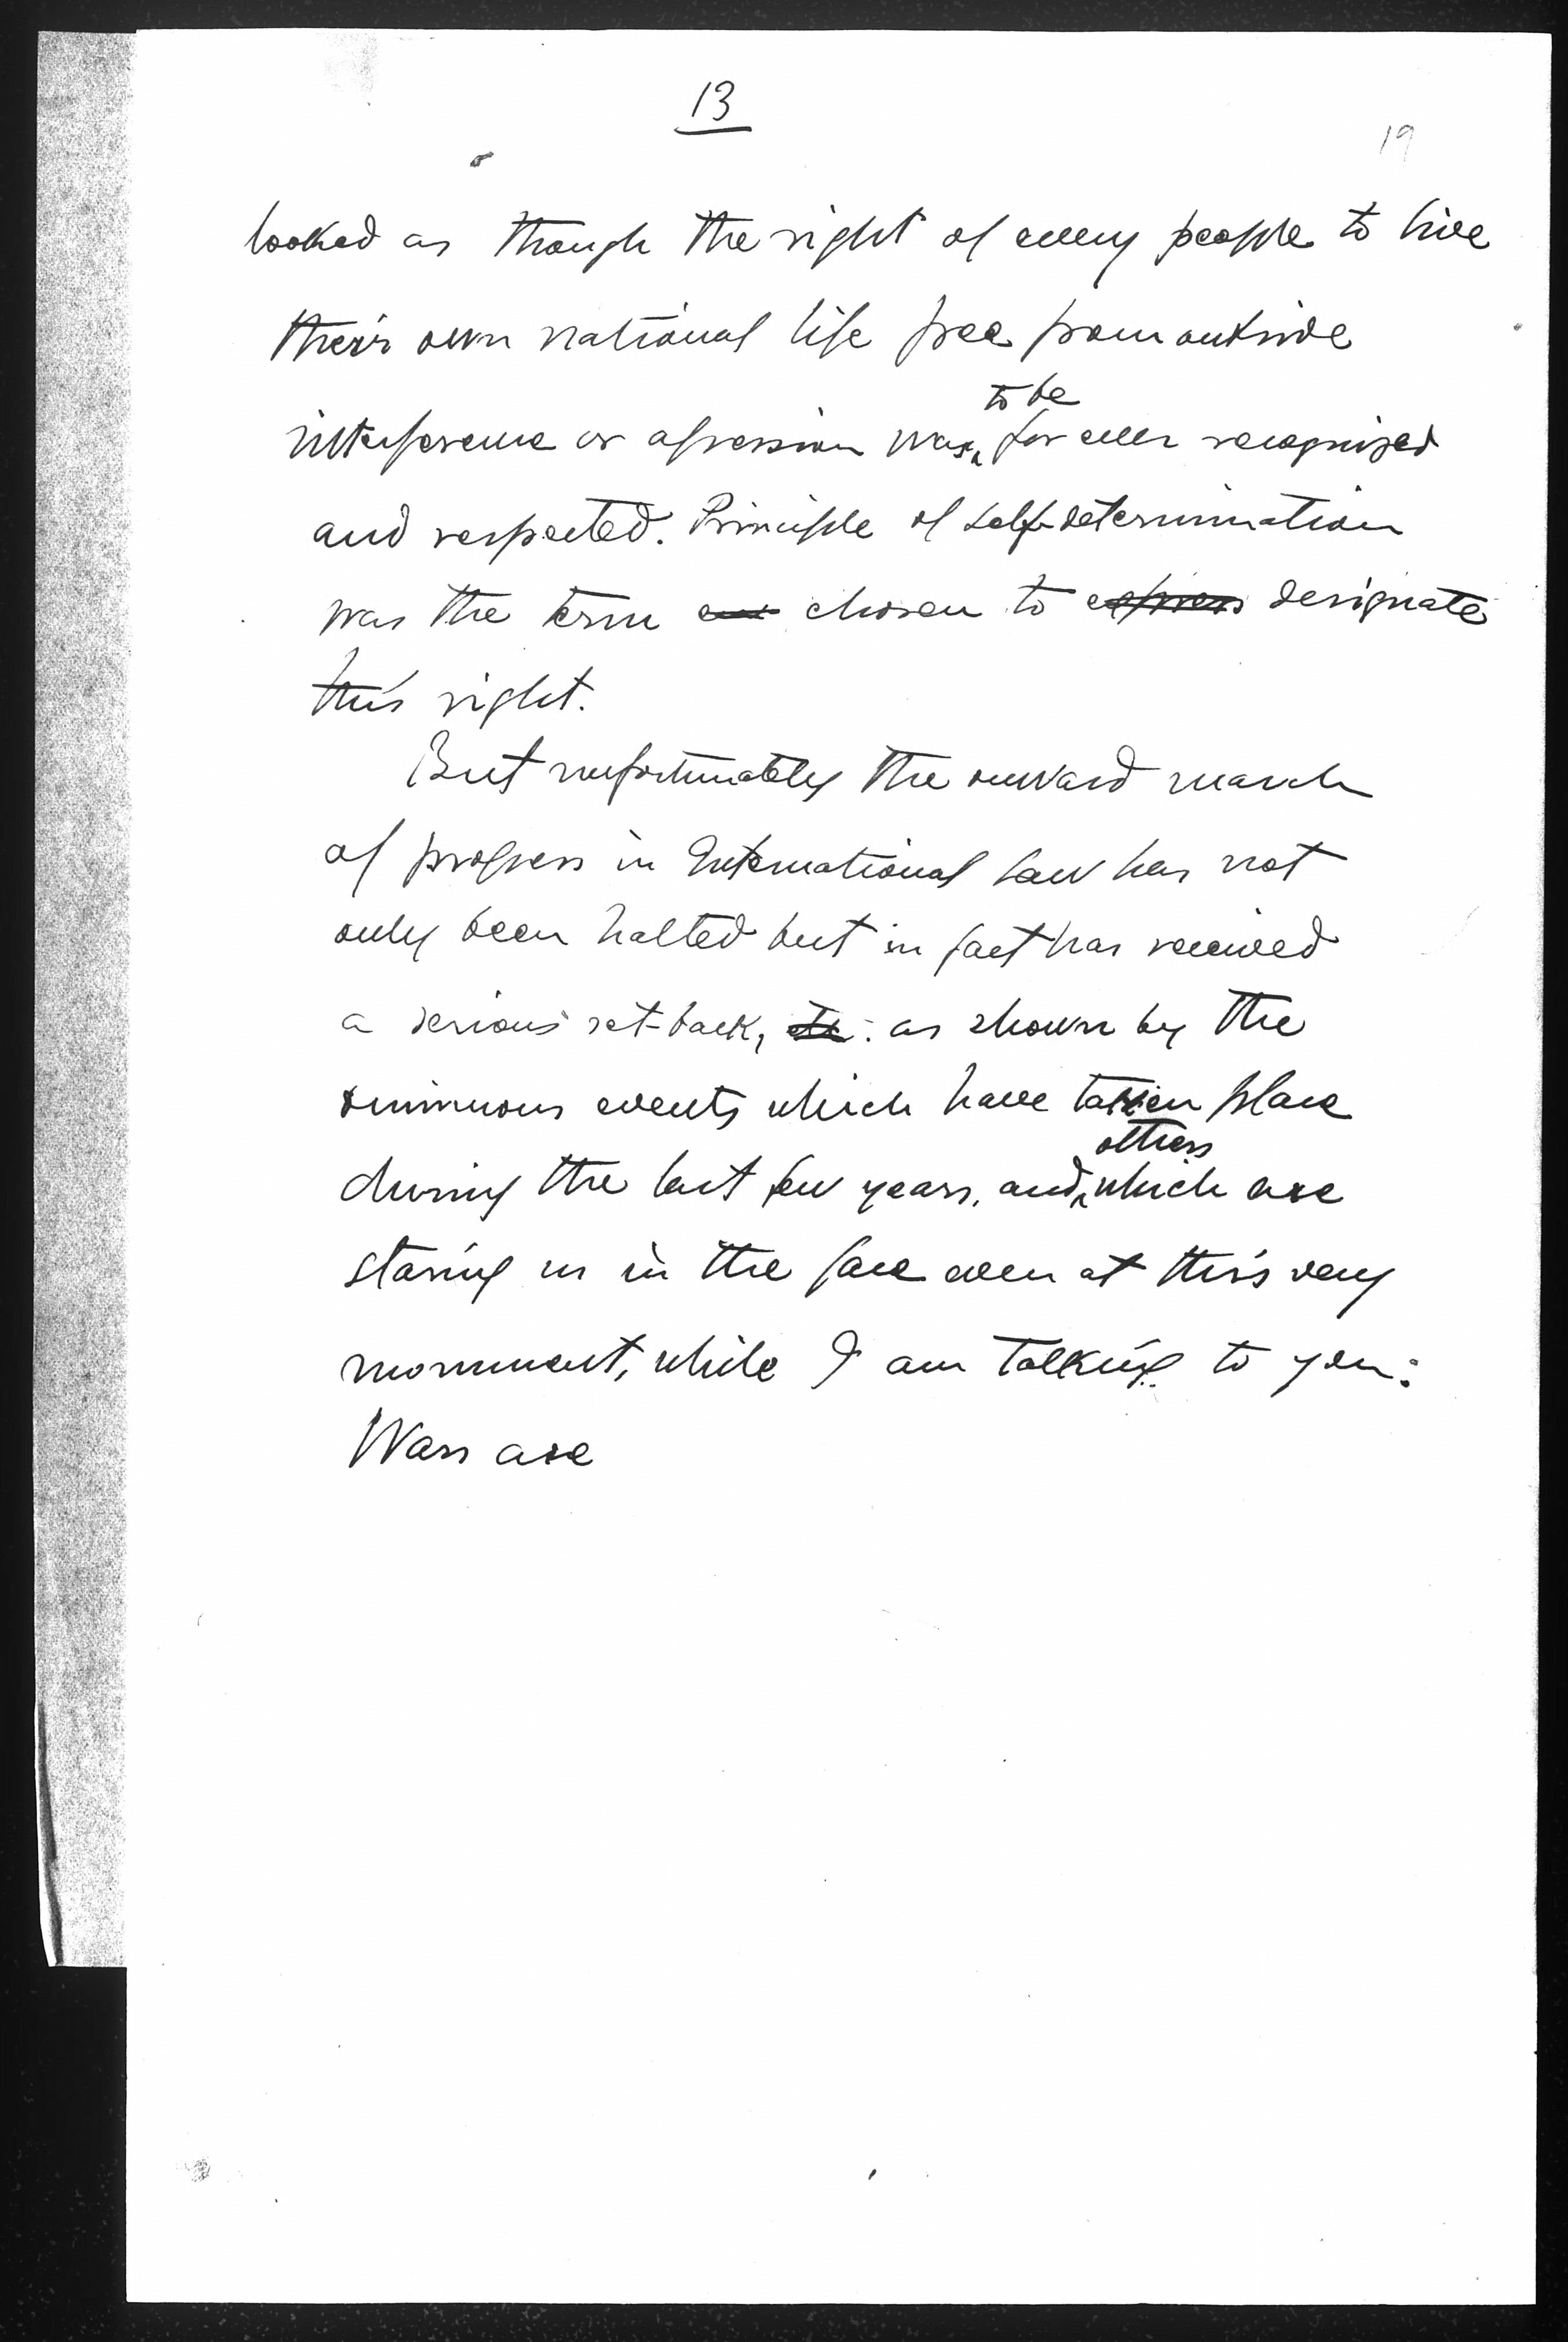 13
19
looked as though the right of every people to live
their own national life free from outside
to be
interference or agression was for ever recognized
and respected. Principle of self-determination
was the term chosen to express designate
this right.
But unfortunately the onward march
of progress in International law has not
only been halted but in fact has received
a serious set-back, as shown by the
events which have taken place
others
during the last few years, and which are
staring us in the face even at this very
momment, while I am talking to you:
Wars are